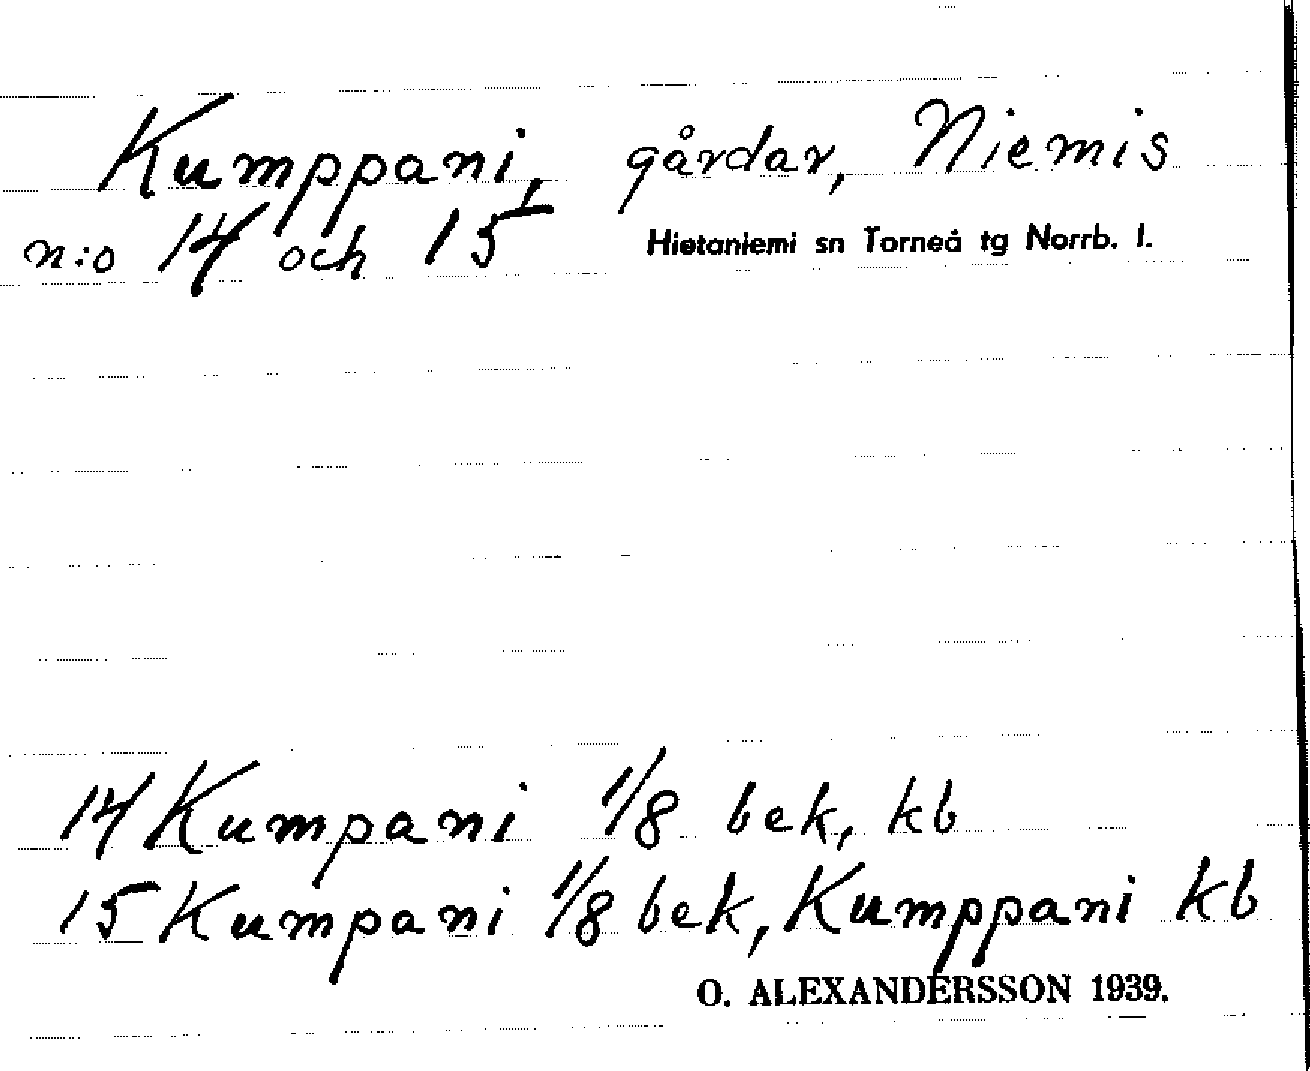 Kumppani, gårdar, Niemis
n:o 14 och 15 Hietaniemi sn Torneå tg Norrb. l.
14 Kumpani 1/8 bek, kb
15 Kumpani 1/8 bek, Kumppani kb
O. ALEXANDERSSON 1939.